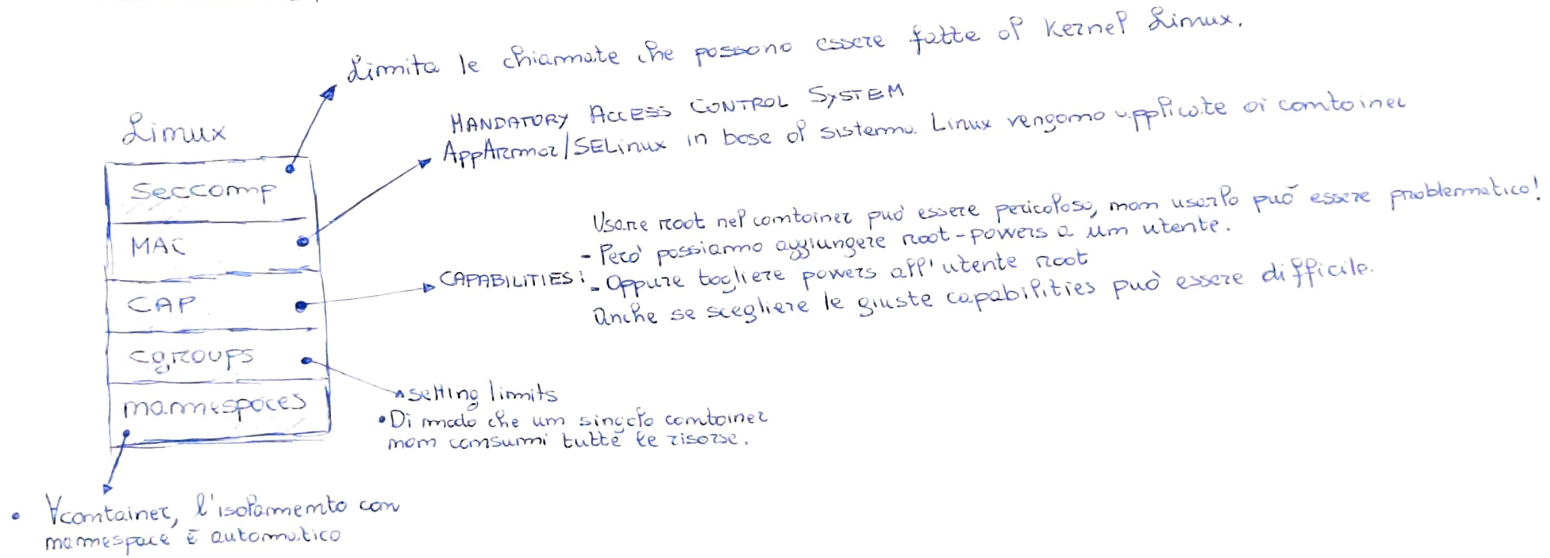 Limita le chiamate che possono essere fatte al Kernel Linux.
MANDATORY ACCESS CONTROL SYSTEM
AppArmor/SELinux in base al sistema Linux vengono applicate ai container
Linux
Seccomp
MAC
CAP
cgroups
namespaces
Usare root nel container può essere pericoloso, non usarlo può essere problematico!
- Però possiamo aggiungere root-powers a un utente.
CAPABILITIES: - Oppure togliere powers all'utente root
Anche se scegliere le giuste capabilities può essere difficile.
setting limits
• Di modo che un singolo container
non consumi tutte le risorse.
• ∀container, l'isolamento con
namespace è automatico